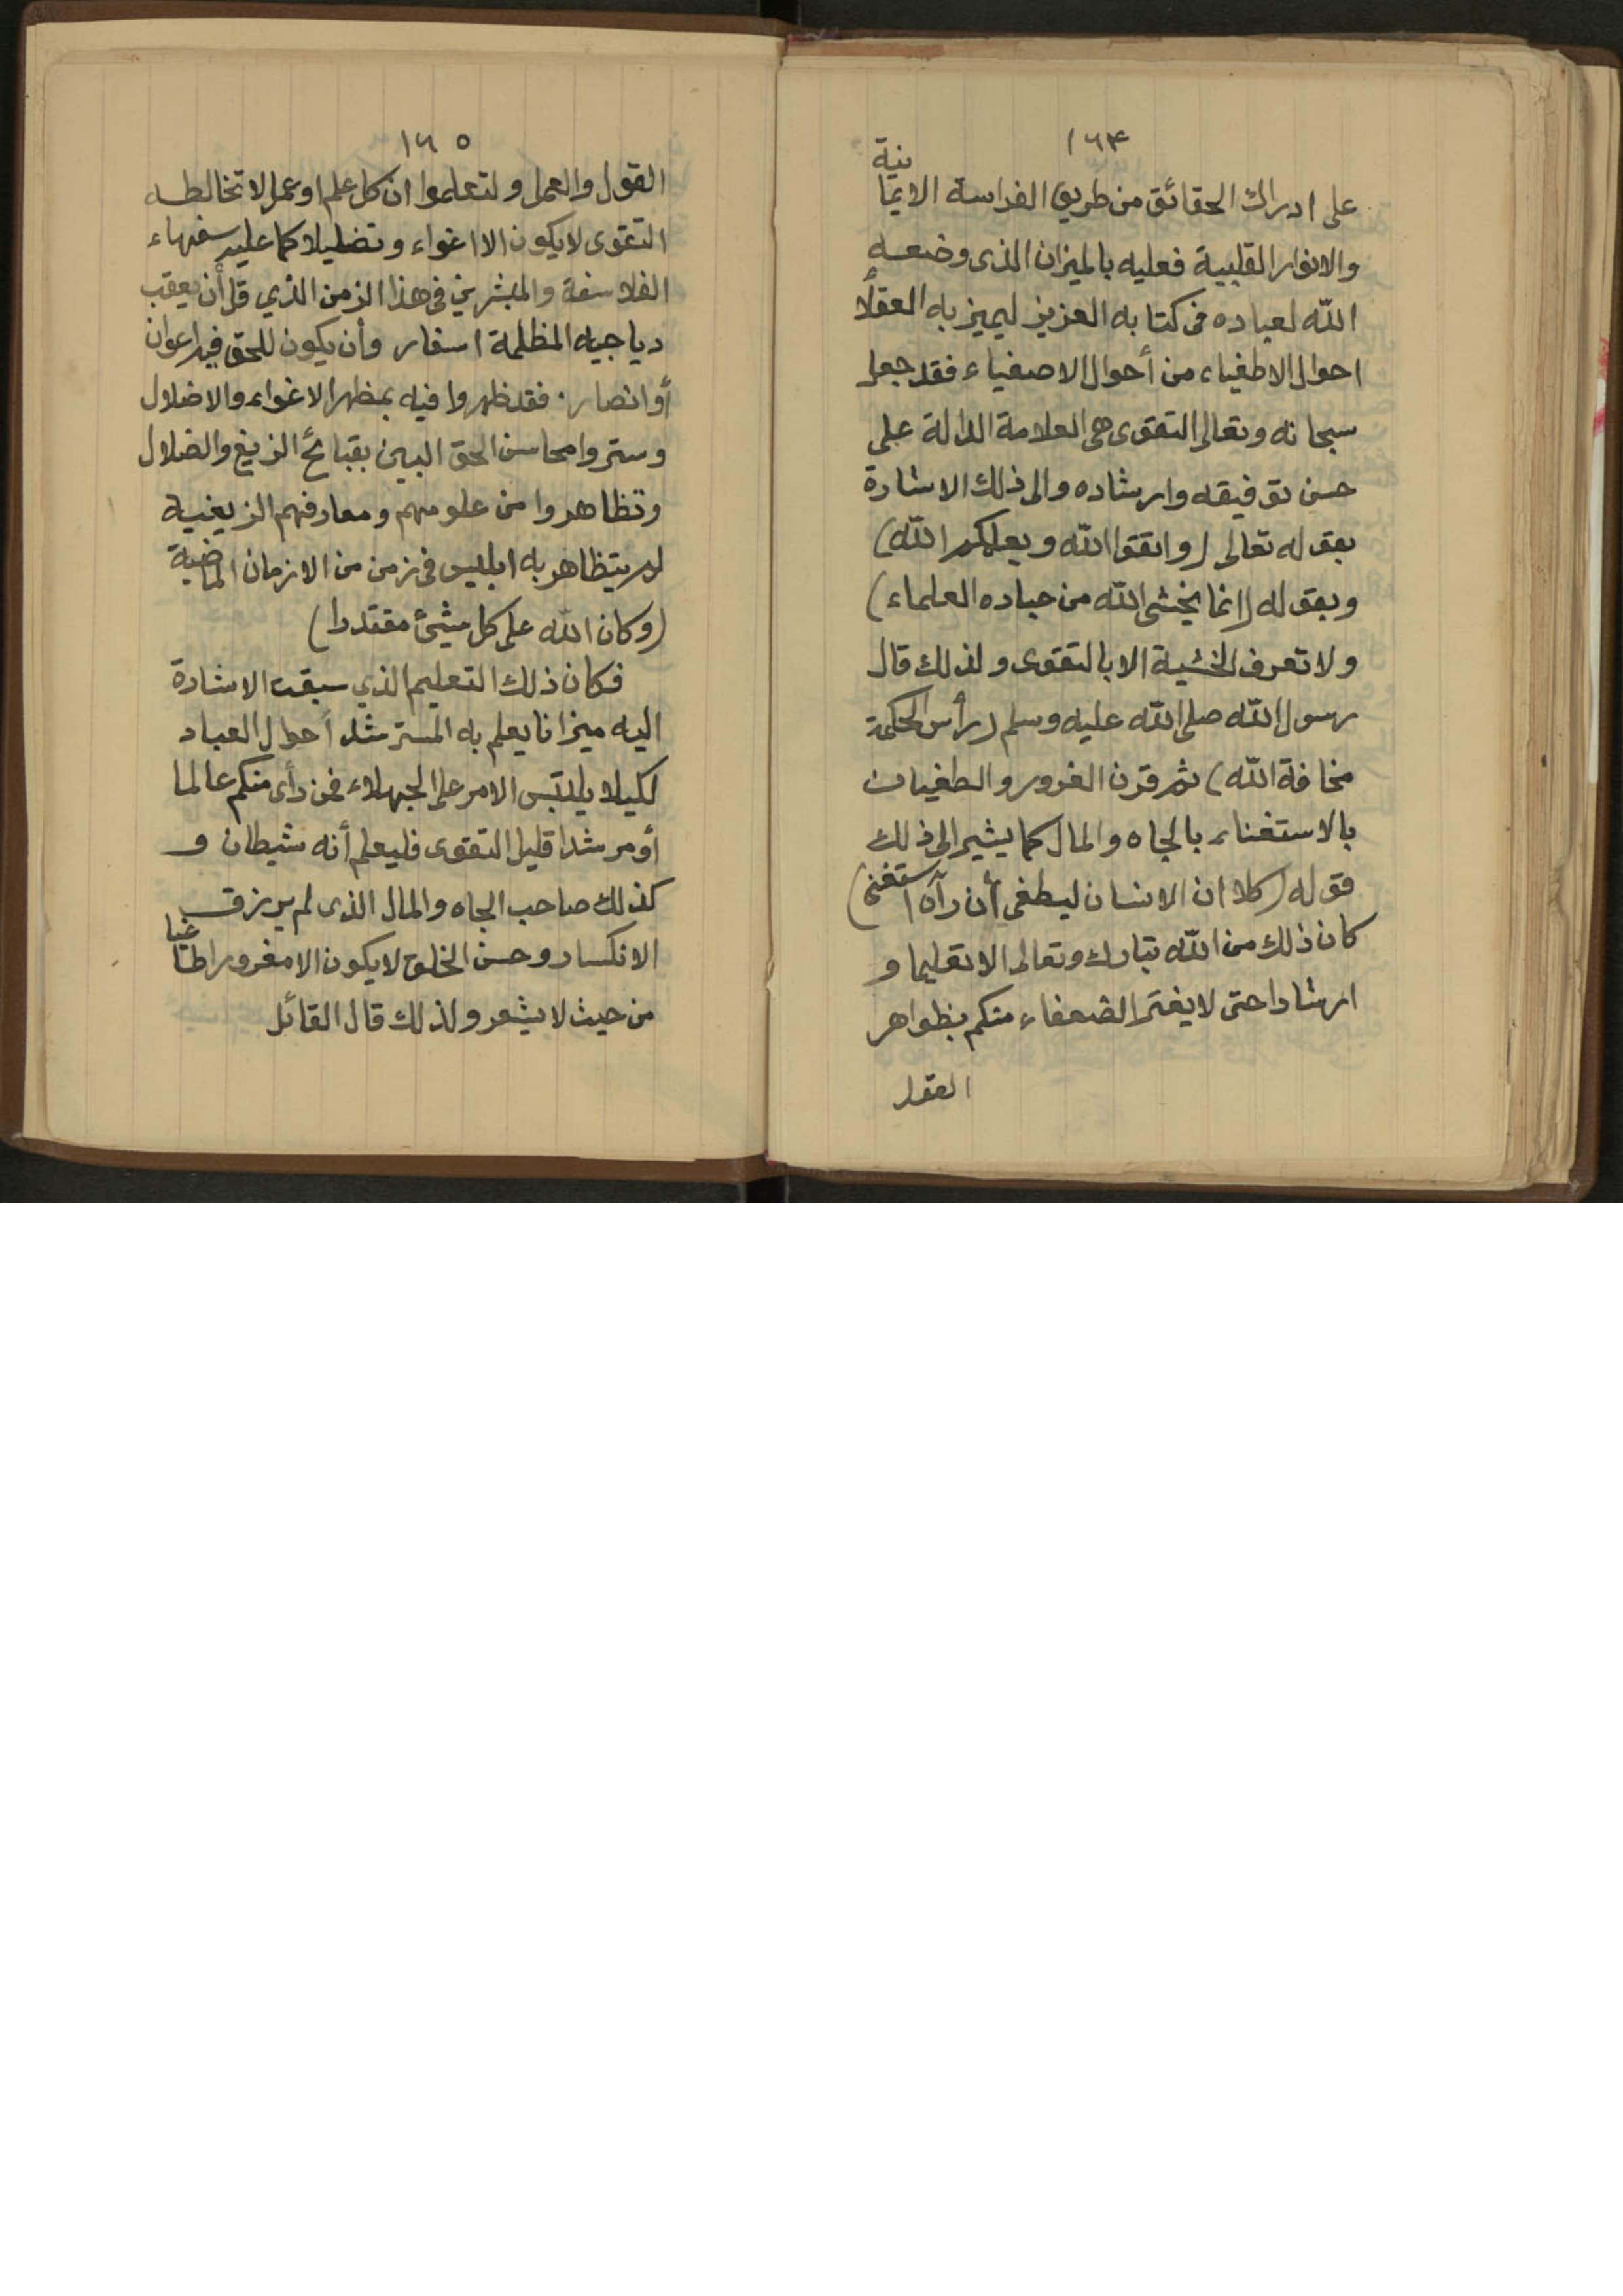 ١٦٤
على ادراك الحقائق من طريق الفراسة الايمانية
والانوار القلبية فعليه بالميزان الذى وضعه
الله لعباده فى كتابه العزيز ليميز به العقلاء
احوال الاطغياء من أحوال الاصفياء فقد جعل
سبحانه وتعالى التقوى هى العلامة الدالة على
حسن توفيقه وارشاده والى ذلك الاشارة
بقوله تعالى (واتقوا الله ويعلمكم الله)
وبقوله (انما يخشى الله من عباده العلماء)
ولا تعرف الخشية الا بالتقوى ولذلك قال
رسول الله صلى الله عليه وسلم (رأس الحكمة
مخافة الله) ثم قرن الغرور والطغيان
بالاستغناء بالجاه والمال كما يشير الى ذلك
قوله (كلا ان الانسان ليطغى أن رآه استغنى)
كان ذلك من الله تبارك وتعالى الا تعليما و
ارشادا حتى لا يغتر الضعفاء منكم بظواهر
القول
١٦٥
القول والعمل ولتعلموا ان كل علم او عمل لا تخالطه
التقوى لا يكون الا اغواء وتضليلا كما عليه سفهاء
الفلاسفة والمبشرين فى هذا الزمن الذي قل أن يعقب
دياجيه المظلمة اسفار وأن يكون للحق فيه اعوان
أو انصار . فقد ظهروا فيه بمظهر الاغواء والاضلال
وستروا محاسن الحق المبين بقبائح الزيغ والضلال
وتظاهروا من علومهم ومعارفهم الزيغية
لم يتظاهر به ابليس فى زمن من الازمان الماضية
(وكان الله على كل شيئ مقتدرا)
فكان ذلك التعليم الذي سبقت الاشارة
اليه ميزانا يعلم به المسترشد أحوال العباد
لكيلا يلتبس الامر على الجهلاء فمن رأى منكم عالما
أو مرشدا قليل التقوى فليعلم أنه شيطان و
كذلك صاحب الجاه والمال الذى لم يرزق
الانكسار وحسن الخلق لا يكون الا مغرورا طاغيا
من حيث لا يشعر ولذلك قال القائل